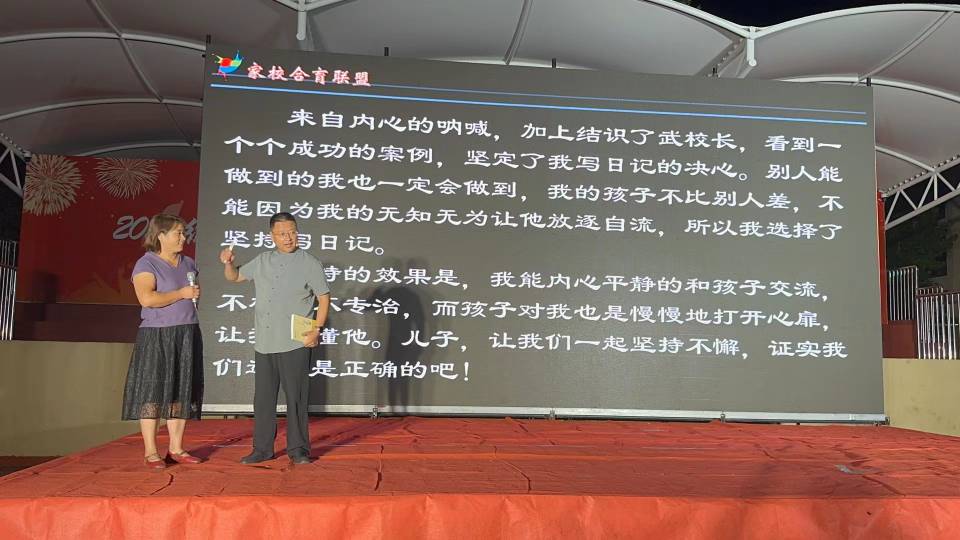 家校合育联盟
来自内心的呐喊，加上结识了武校长，看到一
个个成功的案例，坚定了我写日记的决心。别人能
做到的我也一定会做到，我的孩子不比别人差，不
能因为我的无知无为让他放逐自流，所以我选择了
坚持写日记。
持的效果是，我能内心平静的和孩子交流，
不 专治，而孩子对我也是慢慢地打开心扉，
让 懂他。儿子，让我们一起坚持不懈，证实我
们 是正确的吧！
20